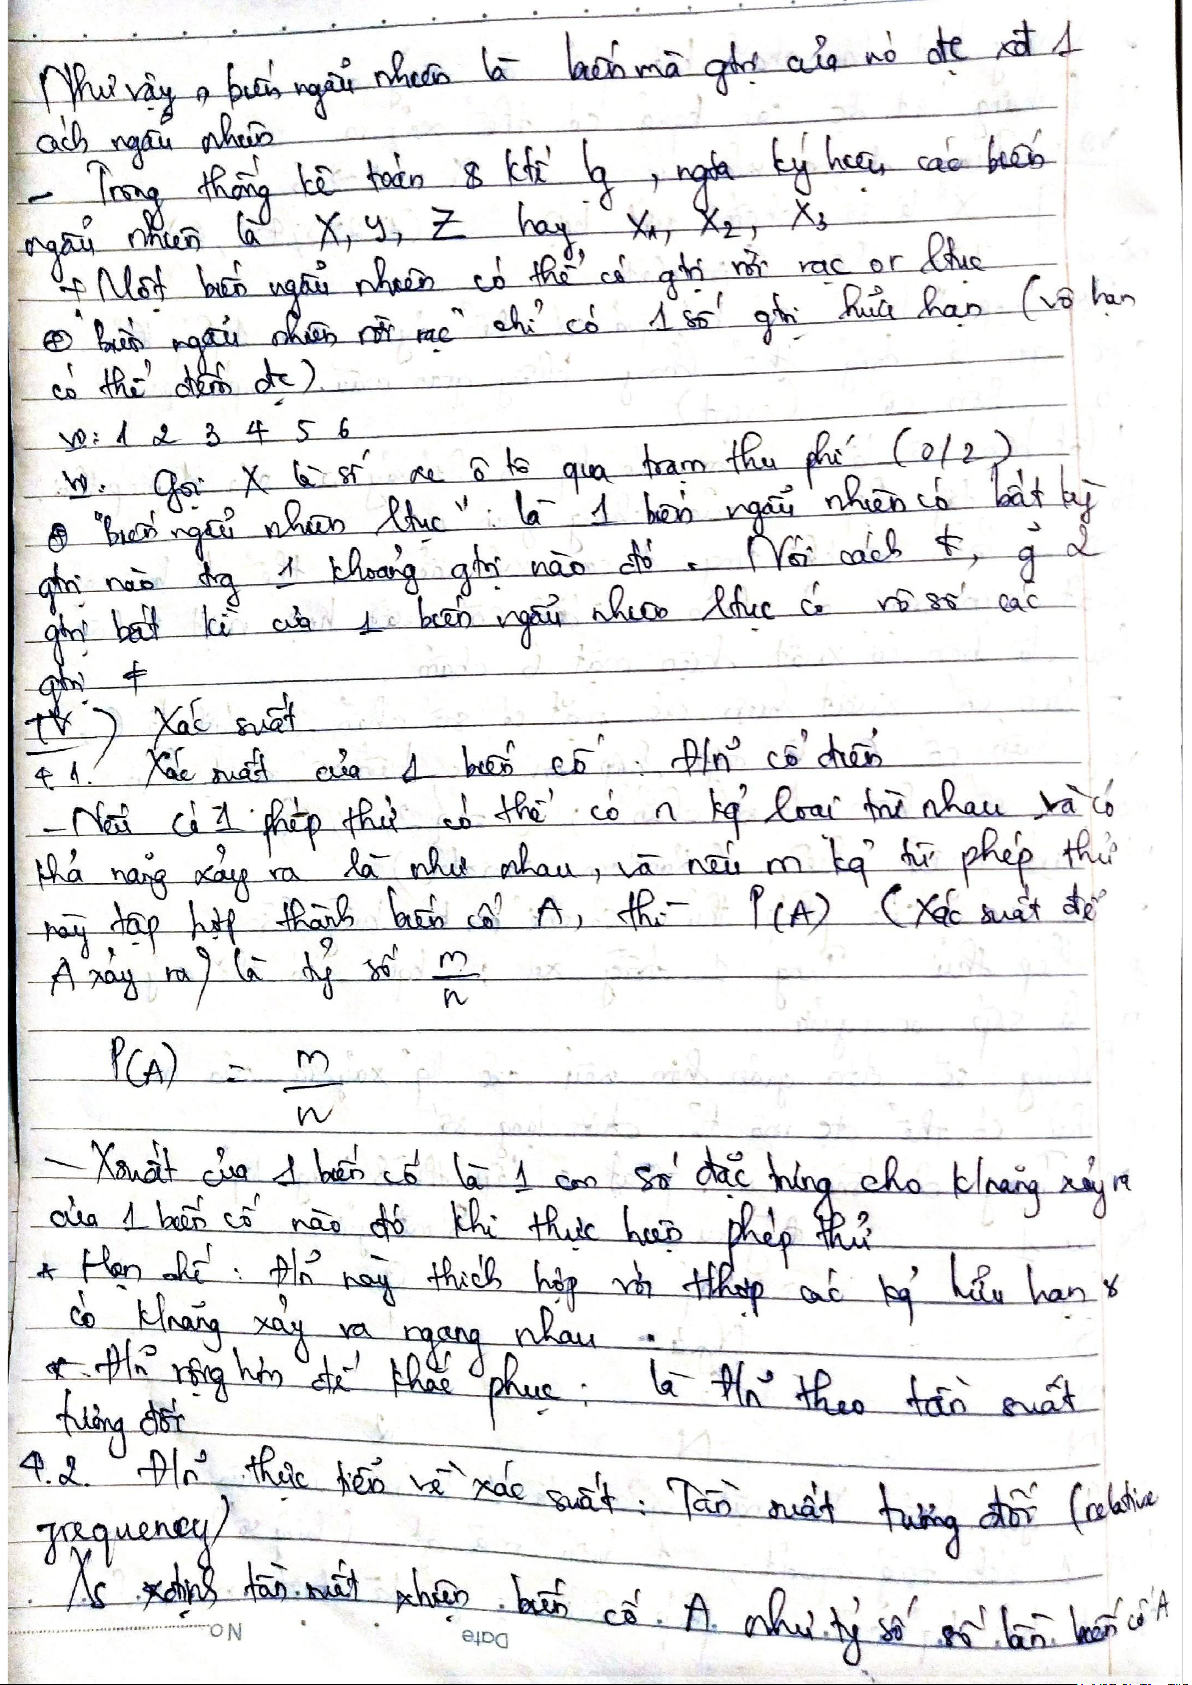 Như vậy, biến ngẫu nhiên là biến mà gtrị của nó đc xđ 1
cách ngẫu nhiên
- Trong thống kê toán & ktế lg, ngta ký hiệu các biến
ngẫu nhiên là X, Y, Z hay X1, X2, X3
+ Một biến ngẫu nhiên có thể có gtrị rời rạc or ltục
⊕ "biến ngẫu nhiên rời rạc" chỉ có 1 số gtrị hữu hạn (vô hạn
có thể đếm đc)
VD: 1 2 3 4 5 6
VD: Gọi X là số xe ô tô qua trạm thu phí (0/2)
⊕ "biến ngẫu nhiên ltục": là 1 biến ngẫu nhiên có bất kỳ
gtrị nào trg 1 khoảng gtrị nào đó. Nói cách ≠, 2
gtrị bất kì của 1 biến ngẫu nhiên ltục có vô số các
gtrị ≠
IV) Xác suất
4.1. Xác suất của 1 biến cố: Đ/n cổ điển
- Nếu có 1 phép thử có thể có n kq loại trừ nhau và có
khả năng xảy ra là như nhau, và nếu m kq từ phép thử
này tập hợp thành biến cố A, thì P(A) (Xác suất để
A xảy ra) là tỷ số m/n
P(A) = m/n
- Xsuất của 1 biến cố là 1 con số đặc trưng cho k/năng xảy ra
của 1 biến cố nào đó khi thực hiện phép thử
* Hạn chế: Đ/n này thích hợp với tthợp các kq hữu hạn &
có k/năng xảy ra ngang nhau.
* Đ/n rộng hơn để khắc phục: là Đ/n theo tần suất
tương đối
4.2. Đ/n thực tiễn về xác suất: Tần suất tương đối (relative
frequency)
xđịnh tần suất xhiện biến cố A như tỷ số số lần biến cố A
No Date